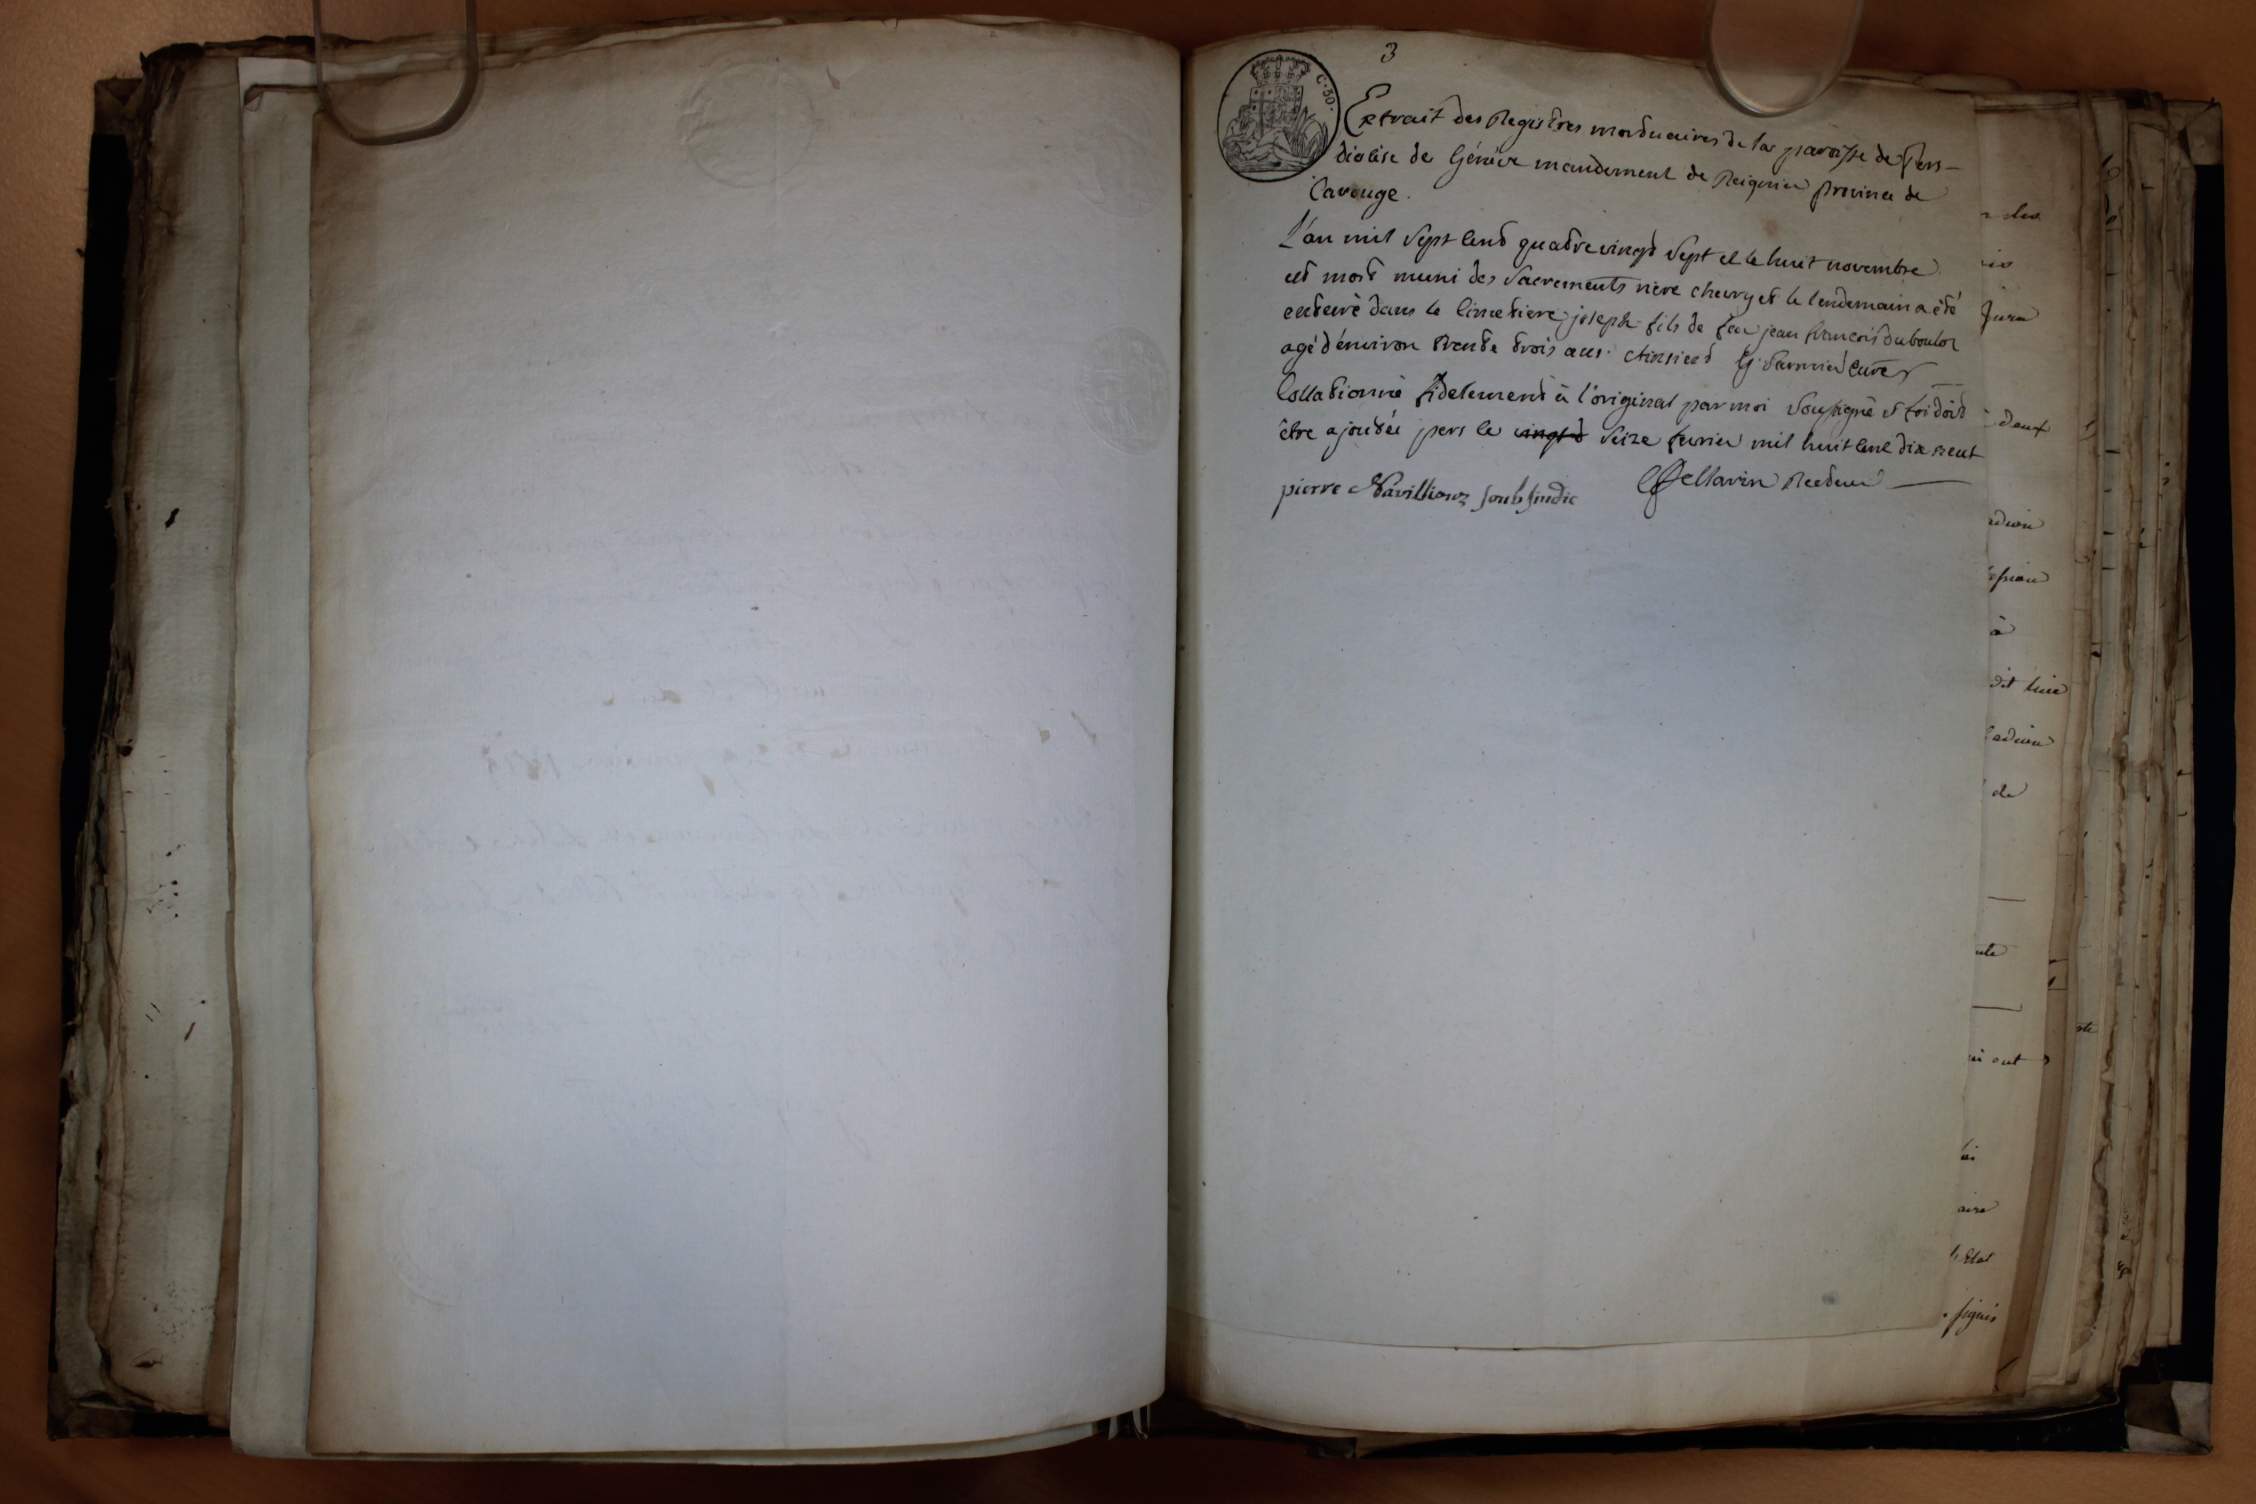 3
C·30·
Extrait des Registres mortuaires de la paroisse de Pers
diocèse de Génève mandement de Reignier province de
Carouge.
L'an mil sept cent quatrevingt sept et le huit novembre
est mort muni des Sacrements riere chevry et le lendemain a été
enterré dans le cimetiere joseph fils de feu jean françois Duboulor
agé d'environ trente trois ans. ainsi est Curé
Collationné fidelement à l'original par moi soussigné et foi doit
être ajoutée pers le vingt Seize fevrier mil huit cent dix neuf
pierre Navillioux soub sindic Pellarin Recteur
Jura
deux
à
dit
de
ui ont
aire
Etat
signés